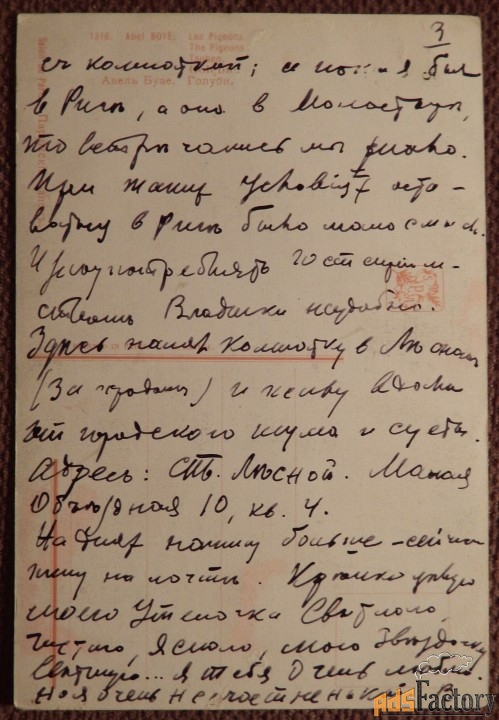 3
1316. Abel BOYÉ. Les Pigeons
The Pigeons
Авель Буае. Голуби.
съ комнаткой; и пока я был
в Ригѣ, а она в
то встрѣчались мы рѣдко.
При таких условіях оста-
ваться в Ригѣ было мало смысл.
И злоупотреблять гостепріим-
ством Владыки неудобно.
Здѣсь нанял комнатку в Лѣсном
(За городом) и живу вдали
от городского шума и суеты.
Адресъ: Ст. Лѣсной. Малая
Объѣздная 10, кв. 4.
На днях напишу больше – сейчас
пишу на почтѣ. Крѣпко цѣлую
моего Ангелочка Свѣтлаго,
чистаго, яснаго, мою Звѣздочку
Свѣтлую... Я тебя очень люблю.
Но я очень несчастненький
AdsFactory